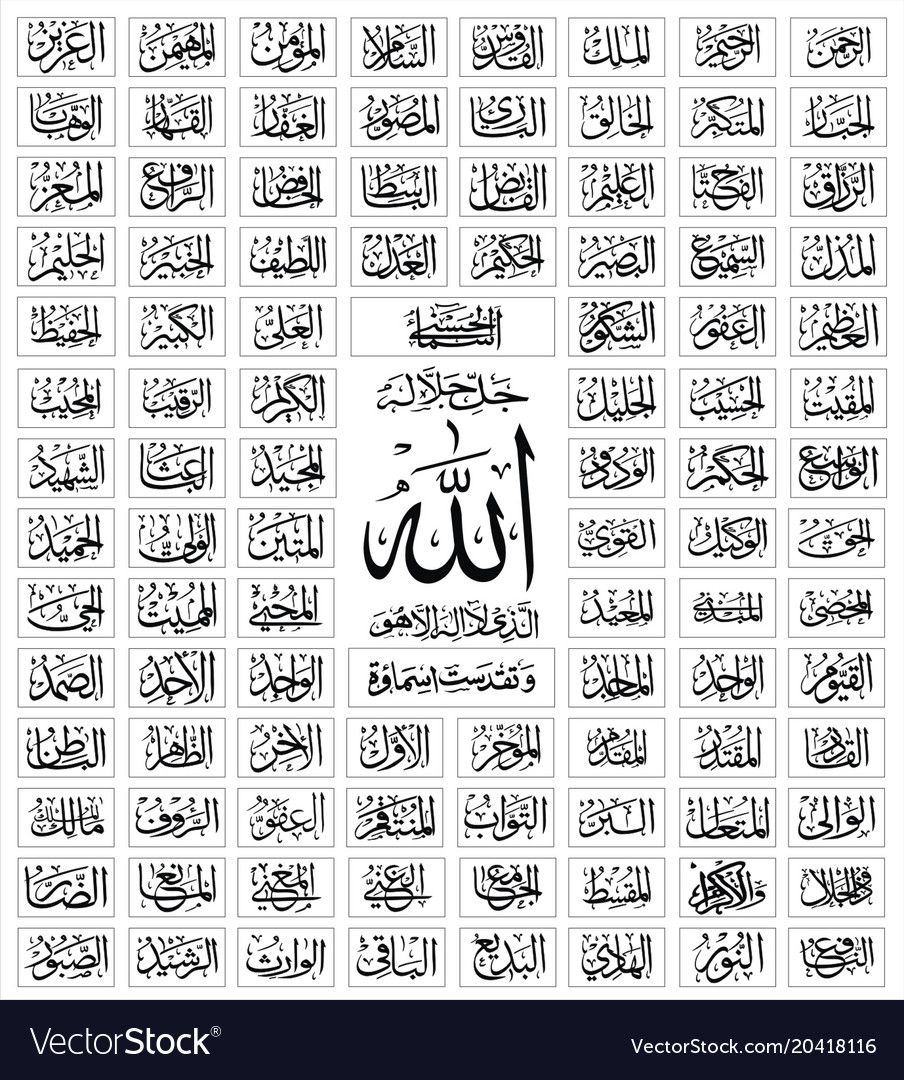 الرحمن الرحيم الملك القدوس السلام المؤمن المهيمن العزيز
الجبار المتكبر الخالق البارئ المصور الغفار القهار الوهاب
الرزاق الفتاح العليم القابض الباسط الخافض الرافع المعز
المذل السميع البصير الحكيم العدل اللطيف الخبير الحليم
العظيم الغفور الشكور أسماء الحسنى العلي الكبير الحفيظ
المقيت الحسيب الجليل جل جلاله الكريم الرقيب المجيب
الواسع الحكم الودود الله المجيد الباعث الشهيد
الحق الوكيل القوي المتين الولي الحميد
المحصي المبدئ المعيد الذي لا اله الا هو المحيي المميت الحي
القيوم الواجد الماجد وتقدست اسماؤه الواحد الأحد الصمد
القادر المقتدر المقدم المؤخر الأول الآخر الظاهر الباطن
الوالي المتعال البر التواب المنتقم العفو الرؤوف مالك الملك
ذو الجلال والاكرام المقسط الجامع الغني المغني المانع الضار
النافع النور الهادي البديع الباقي الوارث الرشيد الصبور
VectorStock®
VectorStock.com/20418116